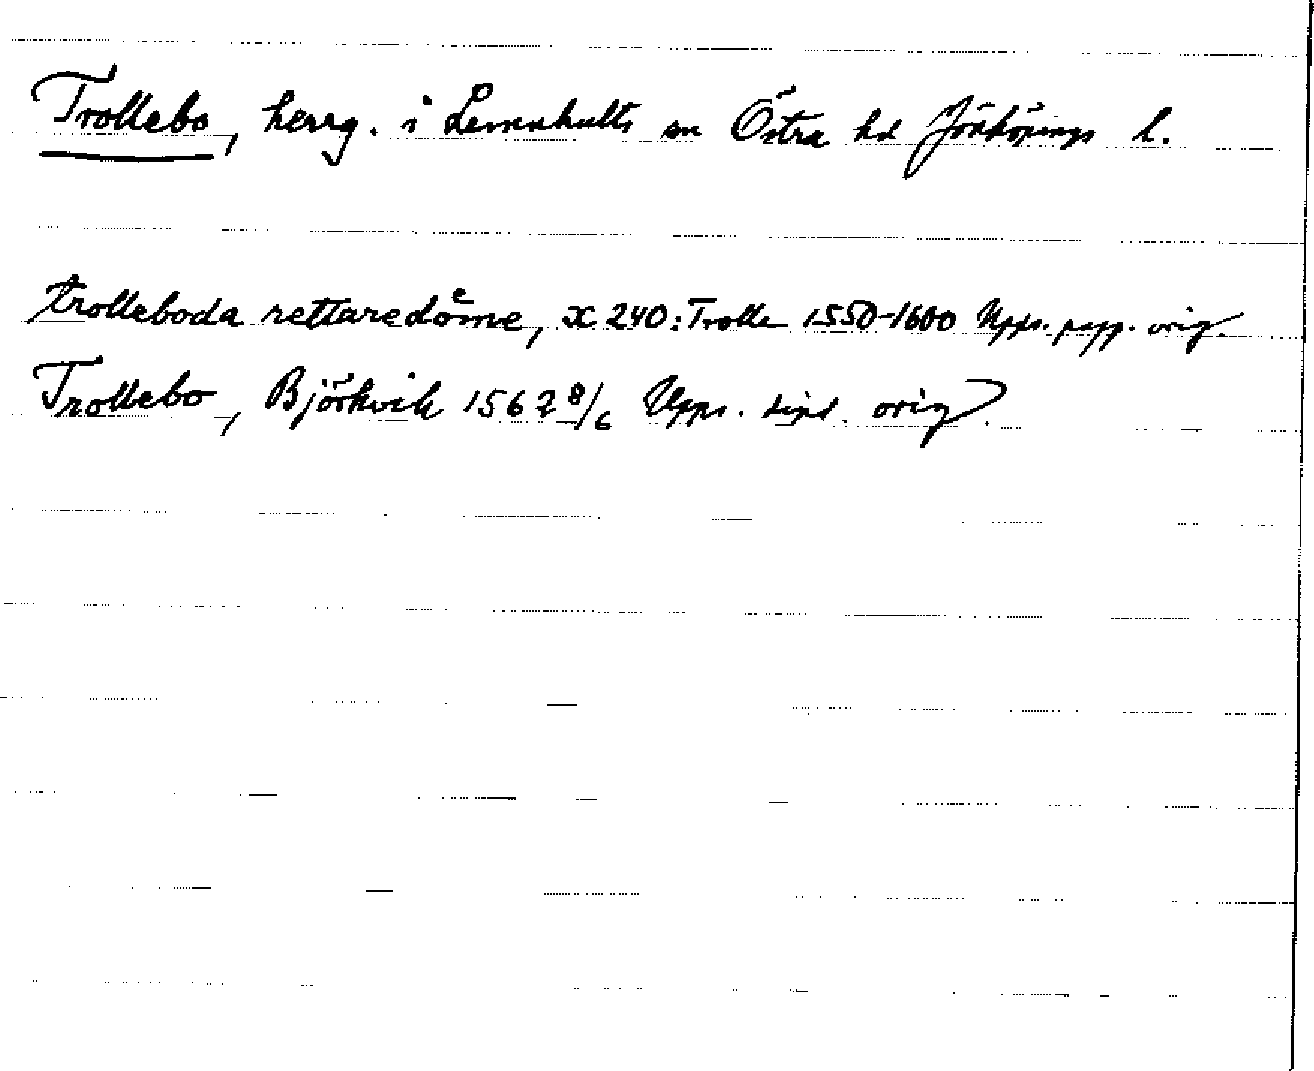 Trollebo, herrg. i Lemnhults sn Östra hd Jönköpings l.
trolleboda rettaredöme, X 240: Trolle 1550-1600 Upps. papp. orig.
Trollebo, Björkvik 1567 8/6 Upps. dipl. orig.